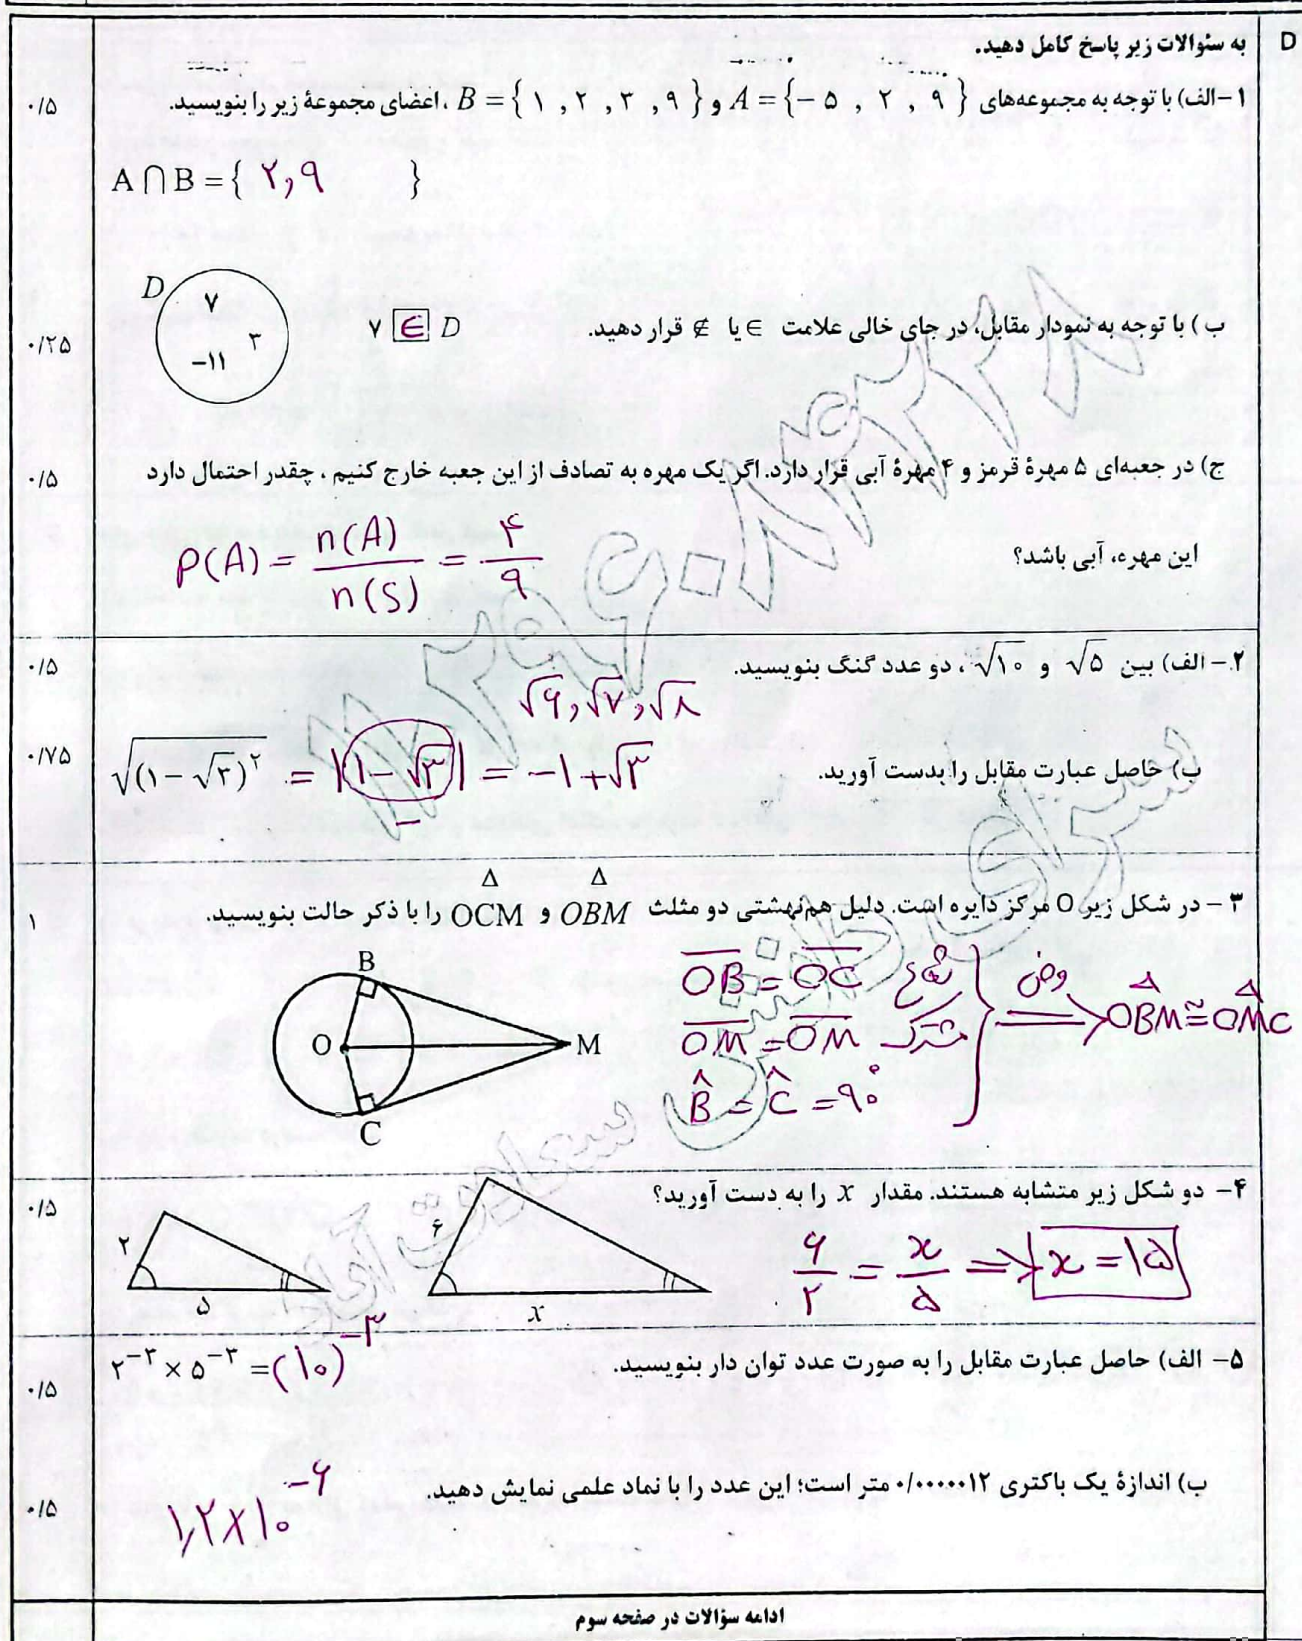 D به سئوالات زیر پاسخ کامل دهید.
۱ – الف) با توجه به مجموعه‌های A = {–۵ , ۲ , ۹} و B = {۱ , ۲ , ۳ , ۹} ، اعضای مجموعهٔ زیر را بنویسید. ۰/۵
A ∩ B = { ۲,۹ }
ب) با توجه به نمودار مقابل، در جای خالی علامت ∈ یا ∉ قرار دهید. ۷ ∈ D ۰/۲۵
D
۷
۳
–۱۱
ج) در جعبه‌ای ۵ مهرهٔ قرمز و ۴ مهرهٔ آبی قرار دارد. اگر یک مهره به تصادف از این جعبه خارج کنیم ، چقدر احتمال دارد ۰/۵
این مهره، آبی باشد؟
P(A) = n(A) / n(S) = ۴ / ۹
۲ – الف) بین √۵ و √۱۰ ، دو عدد گنگ بنویسید. ۰/۵
√۶ , √۷ , √۸
ب) حاصل عبارت مقابل را بدست آورید. ۰/۷۵
√(۱ – √۳)^۲ = |۱ – √۳| = –۱ + √۳
–
۳ – در شکل زیر O مرکز دایره است. دلیل هم‌نهشتی دو مثلث OBM و OCM را با ذکر حالت بنویسید. ۱
B
O
M
C
OB = OC شعاع
OM = OM مشترک
B̂ = Ĉ = ۹۰°
وض ⇒ OBM ≅ OMC
۴ – دو شکل زیر متشابه هستند. مقدار x را به دست آورید؟ ۰/۵
۲
۵
۶
x
۶/۲ = x/۵ ⇒ x = ۱۵
۵ – الف) حاصل عبارت مقابل را به صورت عدد توان دار بنویسید. ۰/۵
۲^–۳ × ۵^–۳ = (۱۰)^–۳
ب) اندازهٔ یک باکتری ۰/۰۰۰۰۰۱۲ متر است؛ این عدد را با نماد علمی نمایش دهید. ۰/۵
۱,۲ × ۱۰^–۶
ادامه سؤالات در صفحه سوم